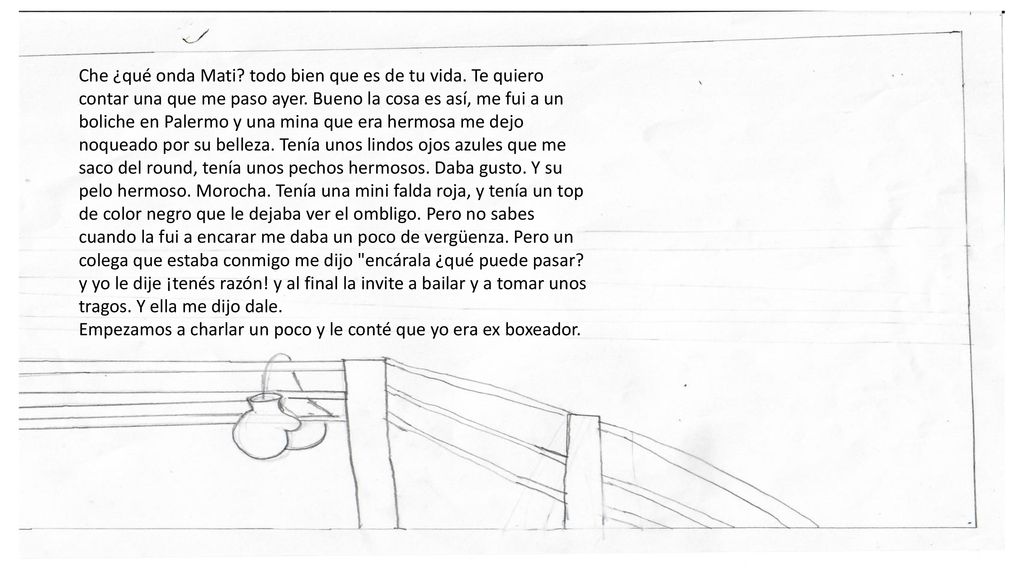 Che ¿qué onda Mati? todo bien que es de tu vida. Te quiero
contar una que me paso ayer. Bueno la cosa es así, me fui a un
boliche en Palermo y una mina que era hermosa me dejo
noqueado por su belleza. Tenía unos lindos ojos azules que me
saco del round, tenía unos pechos hermosos. Daba gusto. Y su
pelo hermoso. Morocha. Tenía una mini falda roja, y tenía un top
de color negro que le dejaba ver el ombligo. Pero no sabes
cuando la fui a encarar me daba un poco de vergüenza. Pero un
colega que estaba conmigo me dijo "encárala ¿qué puede pasar?
y yo le dije ¡tenés razón! y al final la invite a bailar y a tomar unos
tragos. Y ella me dijo dale.
Empezamos a charlar un poco y le conté que yo era ex boxeador.